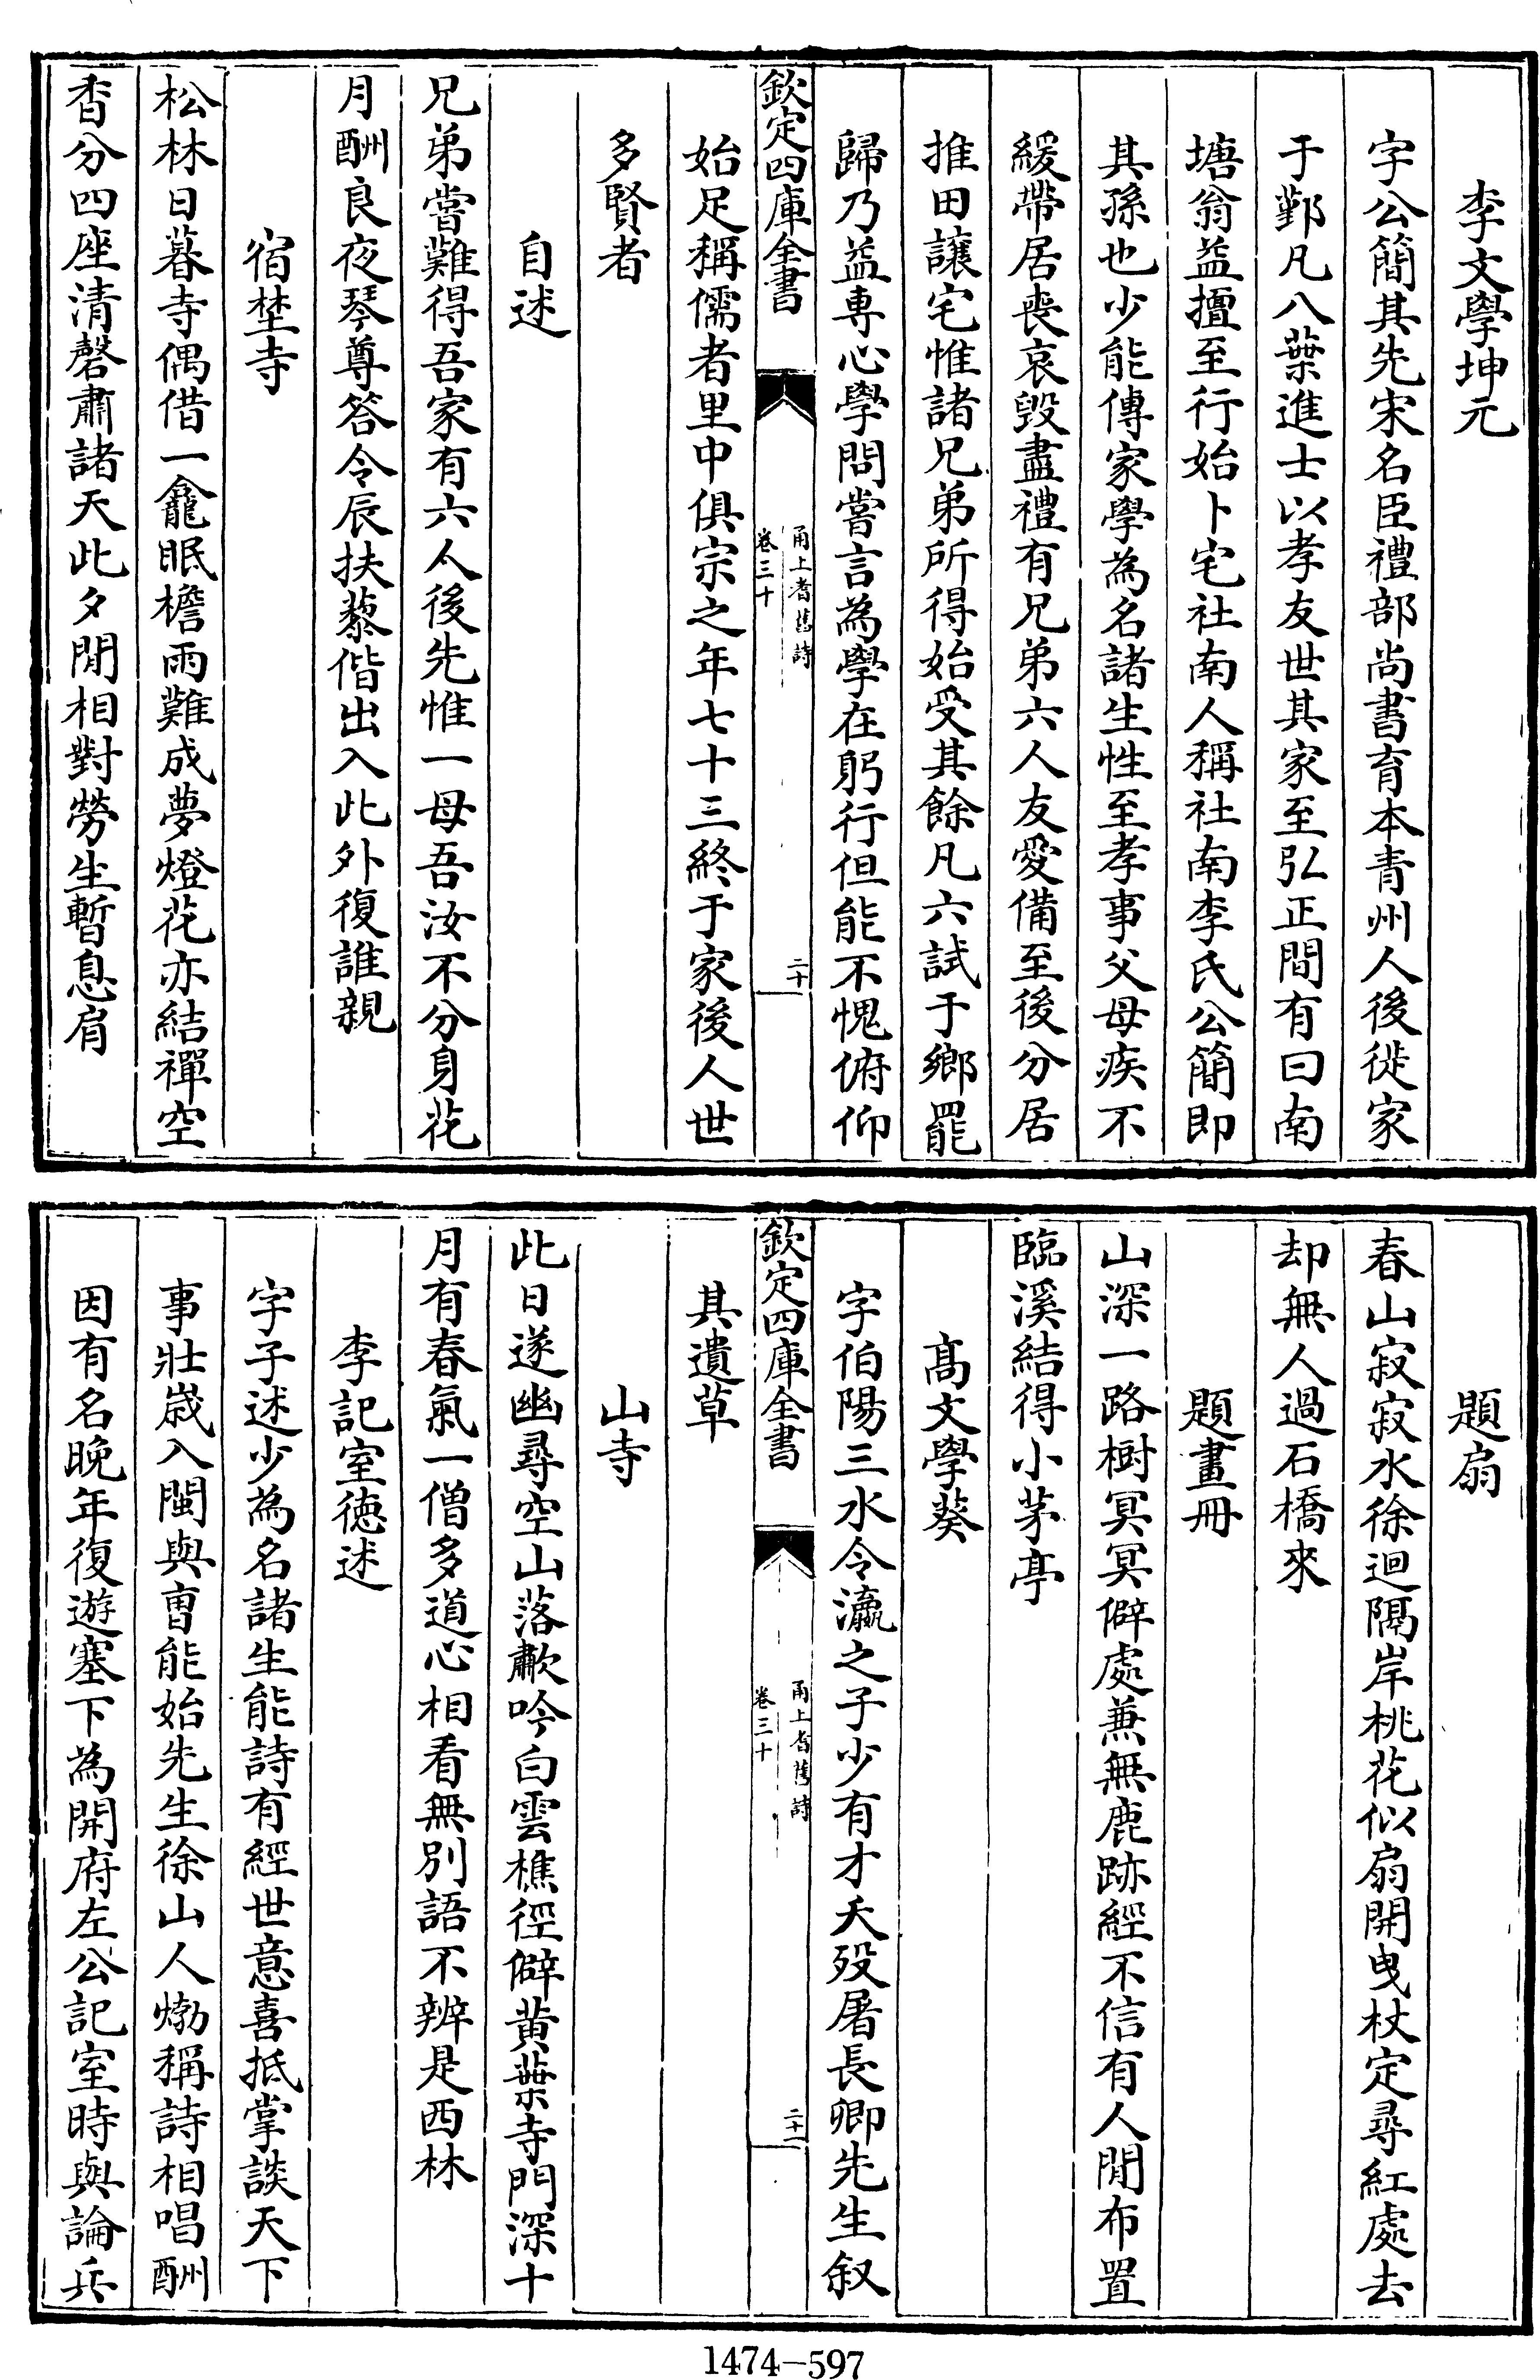 李文學坤元
字公簡其先宋名臣禮部尚書育本青州人後徙家
于鄞凡八葉進士以孝友世其家至弘正間有曰南
塘翁益擅至行始卜宅社南人稱社南李氏公簡即
其孫也少能傳家學為名諸生性至孝事父母疾不
緩帶居喪哀毀盡禮有兄弟六人友愛備至後分居
推田讓宅惟諸兄弟所得始受其餘凡六試于鄉罷
歸乃益專心學問嘗言為學在躬行但能不愧俯仰
欽定四庫全書
甬上耆舊詩
卷三十
二十
始足稱儒者里中俱宗之年七十三終于家後人世
多賢者
自述
兄弟嘗難得吾家有六人後先惟一母吾汝不分身花
月酬良夜琴尊答令辰扶藜偕出入此外復誰親
宿埜寺
松林日暮寺偶借一龕眠檐雨難成夢燈花亦結禪空
香分四座清磬肅諸天此夕閒相對勞生暫息肩
題扇
春山寂寂水徐迴隔岸桃花似扇開曳杖定尋紅處去
却無人過石橋來
題畫冊
山深一路樹冥冥僻處兼無鹿跡經不信有人閒布置
臨溪結得小茅亭
高文學葵
字伯陽三水令瀛之子少有才夭歿屠長卿先生叙
欽定四庫全書
甬上耆舊詩
卷三十
二十一
其遺草
山寺
此日遂幽尋空山落歗吟白雲樵徑僻黃葉寺門深十
月有春氣一僧多道心相看無別語不辨是西林
李記室德述
字子述少為名諸生能詩有經世意喜抵掌談天下
事壯歲入閩與曹能始先生徐山人𤊹稱詩相唱酬
因有名晚年復遊塞下為開府左公記室時與論兵
1474-597